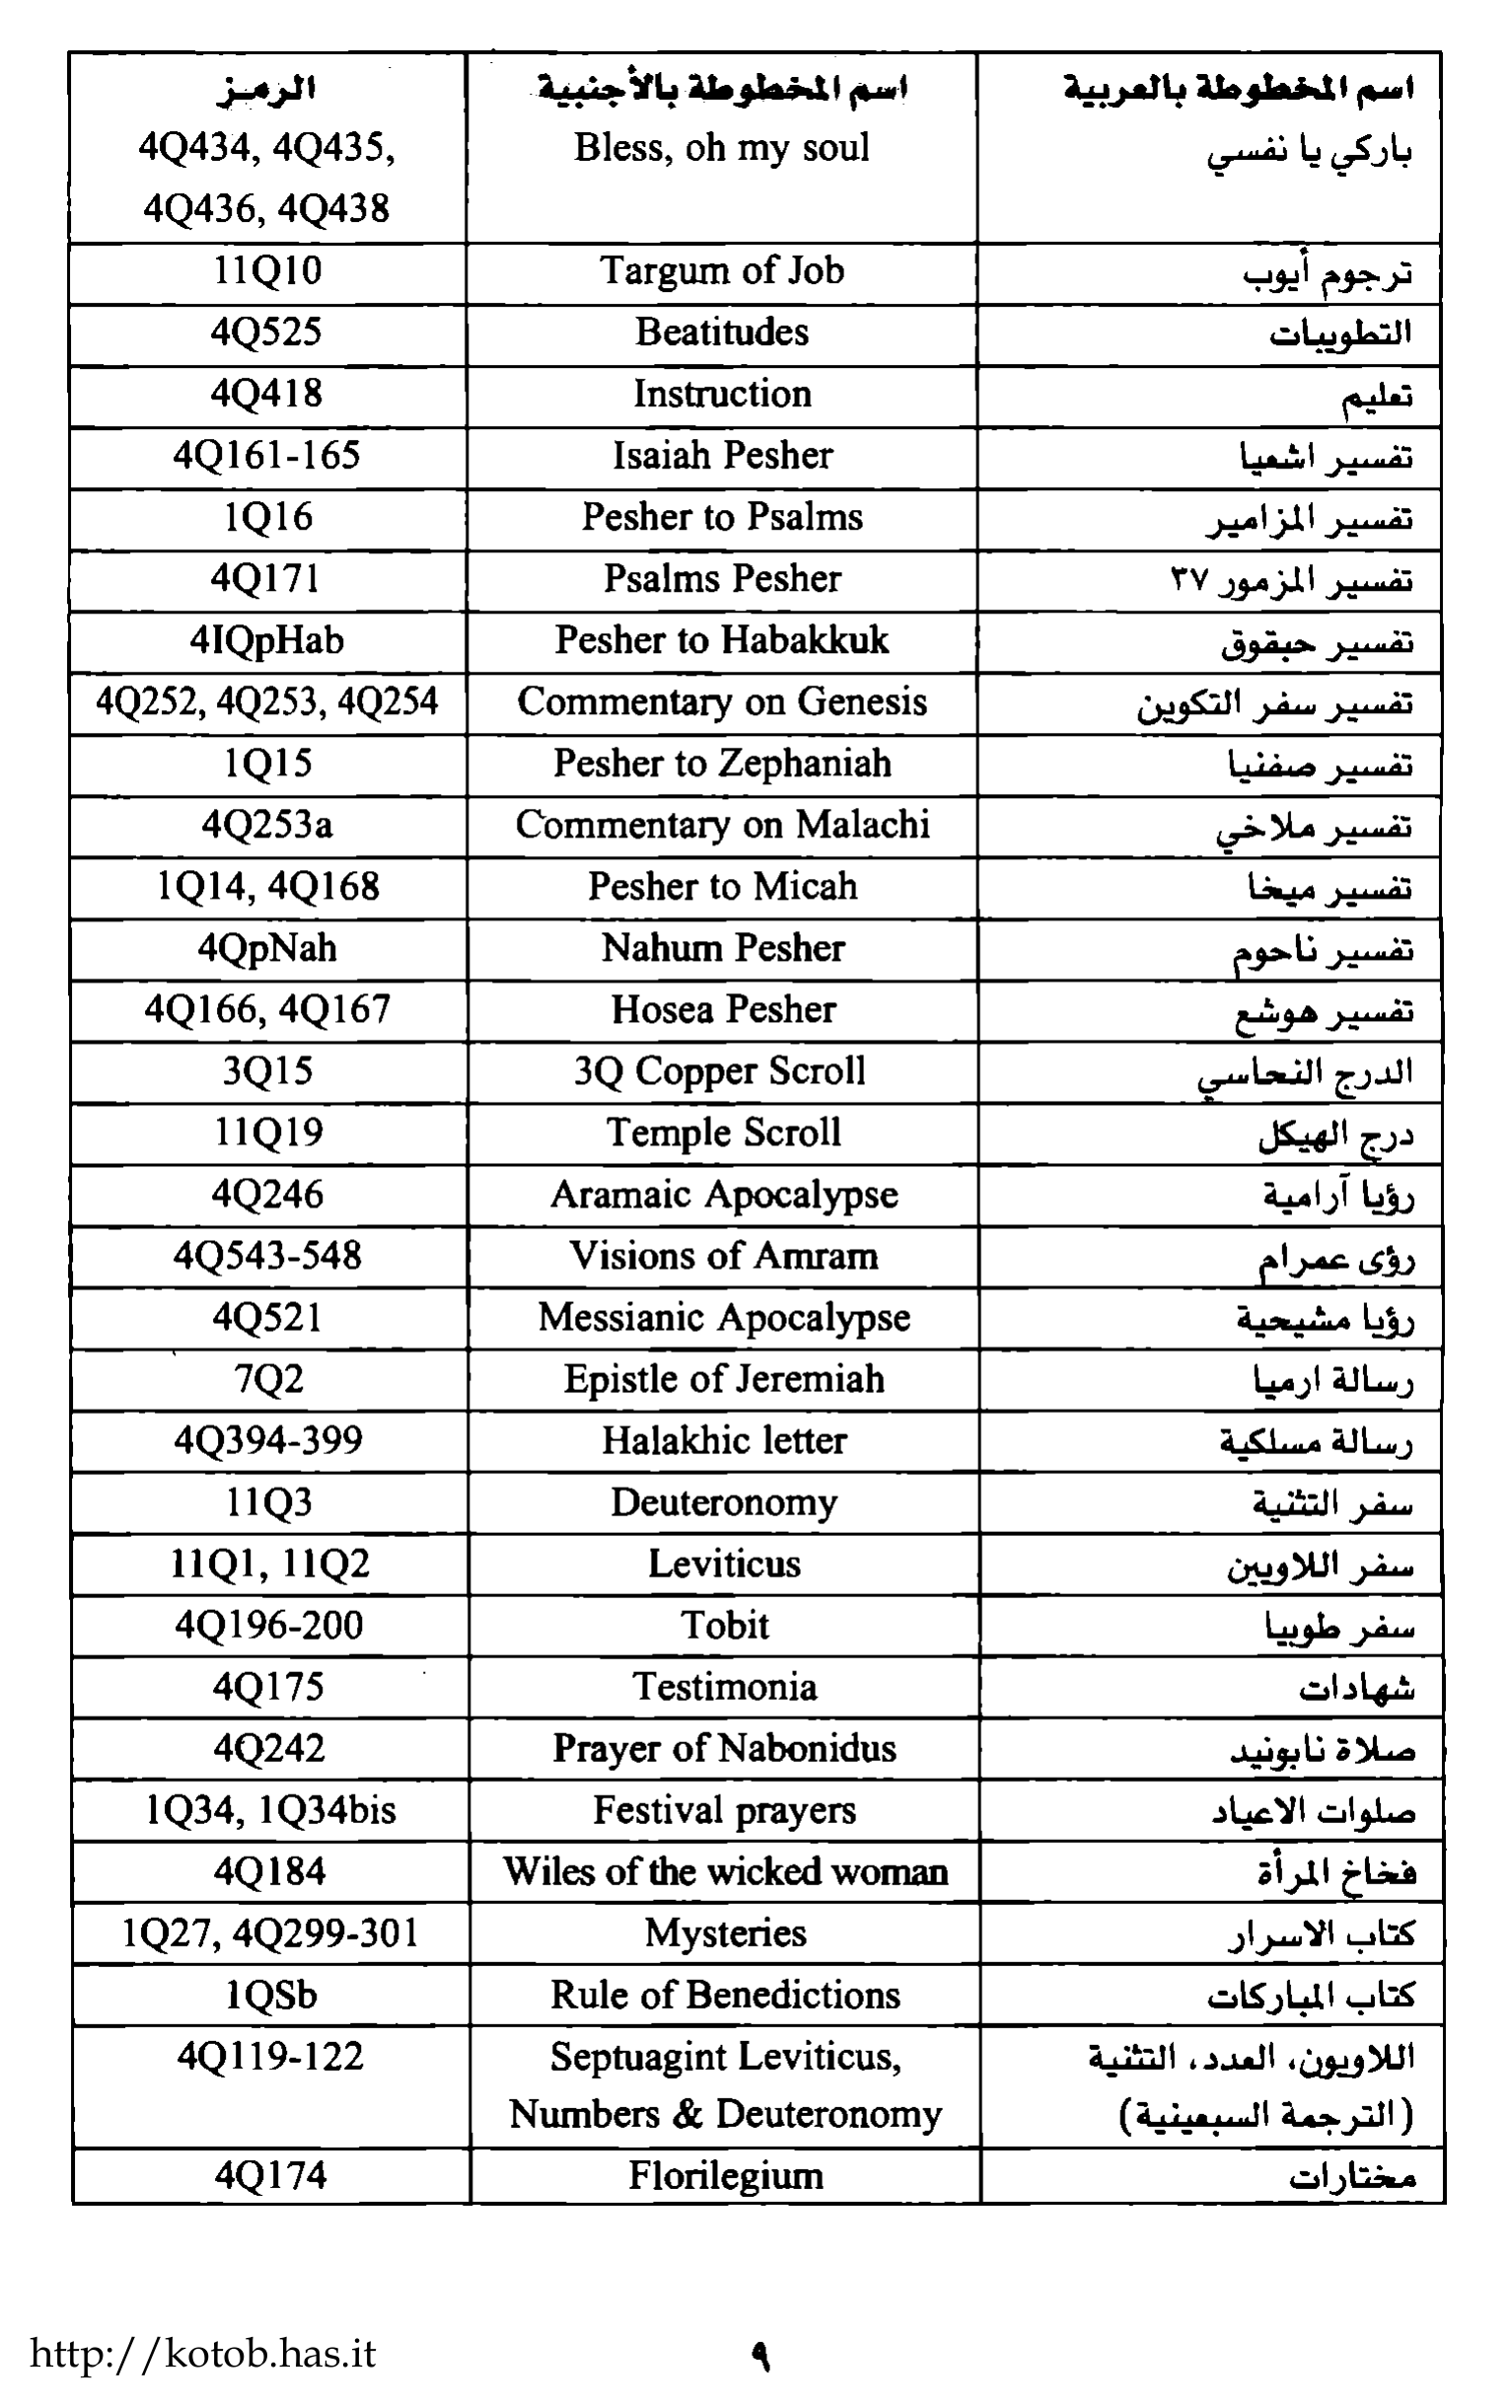 اسم المخطوطة بالعربية اسم المخطوطة بالأجنبية الرمز
باركي يا نفسي Bless, oh my soul 4Q434, 4Q435,
4Q436, 4Q438
ترجوم أيوب Targum of Job 11Q10
التطويبات Beatitudes 4Q525
تعليم Instruction 4Q418
تفسير اشعيا Isaiah Pesher 4Q161-165
تفسير المزامير Pesher to Psalms 1Q16
تفسير المزمور ٣٧ Psalms Pesher 4Q171
تفسير حبقوق Pesher to Habakkuk 4IQpHab
تفسير سفر التكوين Commentary on Genesis 4Q252, 4Q253, 4Q254
تفسير صفنيا Pesher to Zephaniah 1Q15
تفسير ملاخي Commentary on Malachi 4Q253a
تفسير ميخا Pesher to Micah 1Q14, 4Q168
تفسير ناحوم Nahum Pesher 4QpNah
تفسير هوشع Hosea Pesher 4Q166, 4Q167
الدرج النحاسي 3Q Copper Scroll 3Q15
درج الهيكل Temple Scroll 11Q19
رؤيا آرامية Aramaic Apocalypse 4Q246
رؤى عمرام Visions of Amram 4Q543-548
رؤيا مشيحية Messianic Apocalypse 4Q521
رسالة ارميا Epistle of Jeremiah 7Q2
رسالة مسلكية Halakhic letter 4Q394-399
سفر التثنية Deuteronomy 11Q3
سفر اللاويين Leviticus 11Q1, 11Q2
سفر طوبيا Tobit 4Q196-200
شهادات Testimonia 4Q175
صلاة نابونيد Prayer of Nabonidus 4Q242
صلوات الاعياد Festival prayers 1Q34, 1Q34bis
فخاخ المرأة Wiles of the wicked woman 4Q184
كتاب الاسرار Mysteries 1Q27, 4Q299-301
كتاب المباركات Rule of Benedictions 1QSb
اللاويون، العدد، التثنية Septuagint Leviticus, 4Q119-122
(الترجمة السبعينية) Numbers & Deuteronomy
مختارات Florilegium 4Q174
٩
http://kotob.has.it